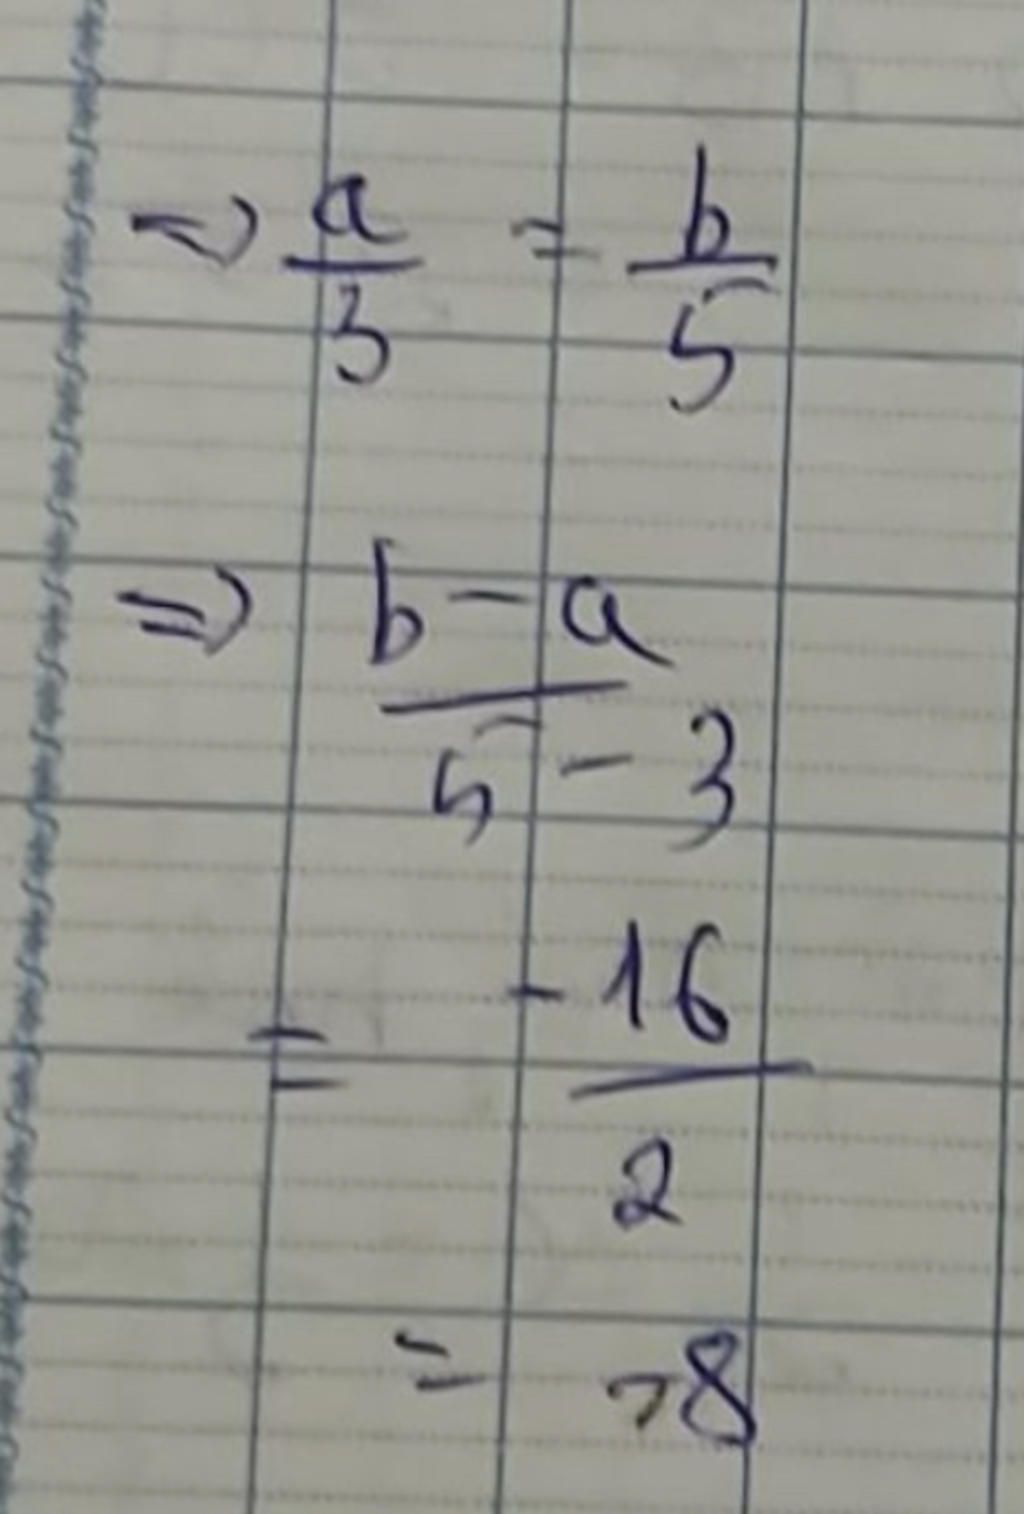 => a/3 = b/5
=> b - a / 5 - 3
= -16/2
= -8